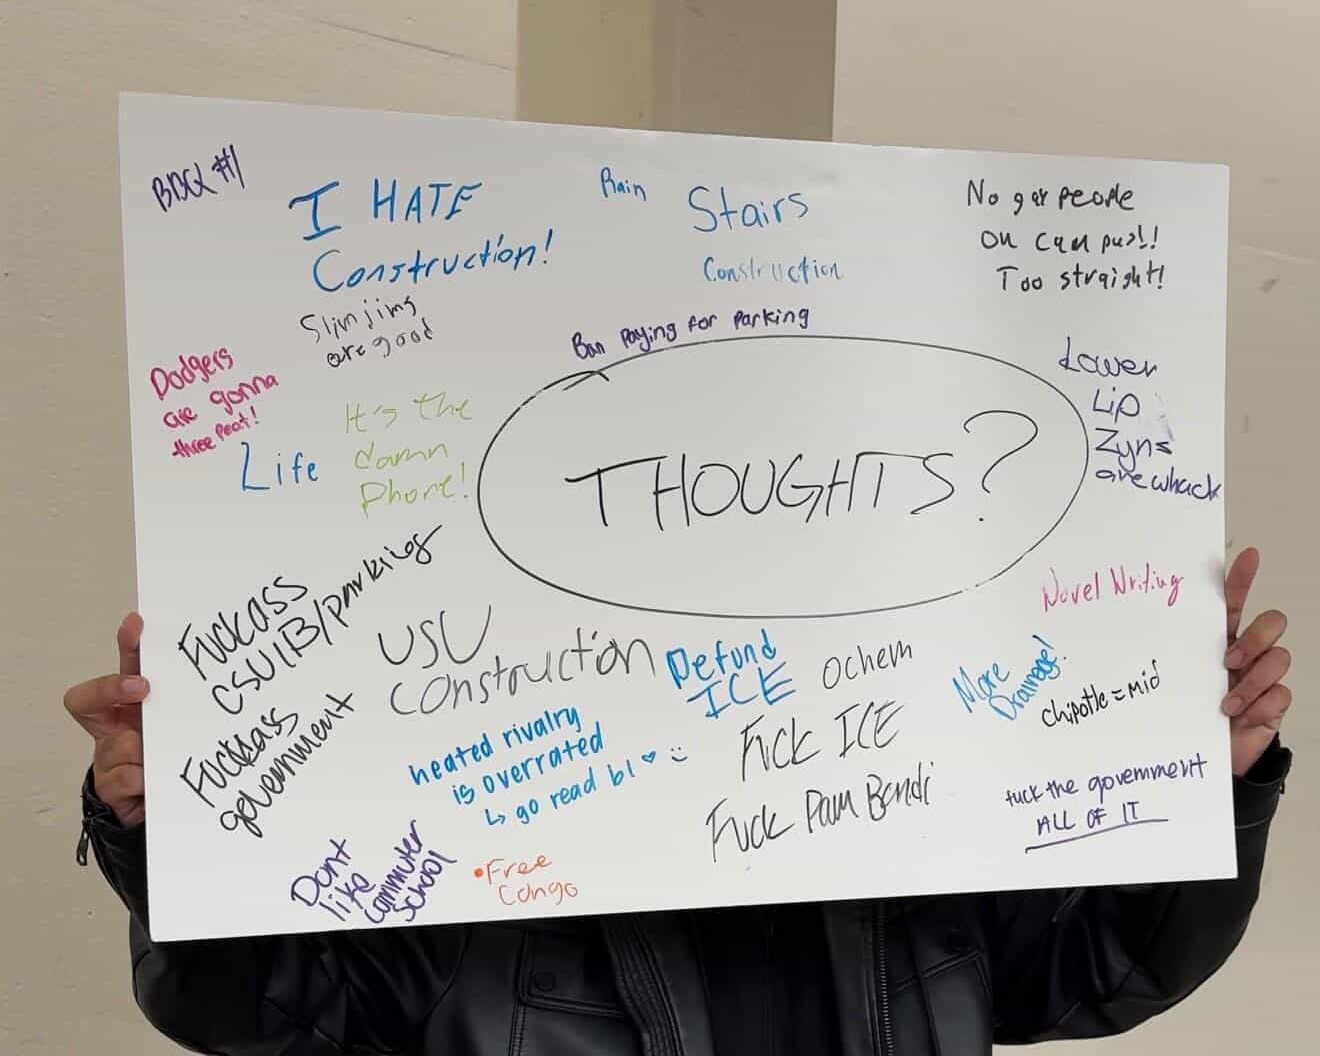 I HATE
Construction!
Rain
Stairs
Construction
No gay people
on campus!!
Too straight!
Slim jims
are good
Ban paying for parking
Dodgers
are gonna
three peat!
Life
It's the
damn
Phone!
THOUGHTS?
Lower
Lip
Zyns
are whack
Novel Writing
Fuckass
CSULB/parking
Fuckass
government
USU
construction
Defund
ICE
ochem
More
Drainage!
chipotle = mid
heated rivalry
is overrated
↳ go read bl ♡ :)
Fuck ICE
Fuck Pam Bondi
fuck the government
ALL OF IT
Dont
like
commuter
school
•Free
Congo